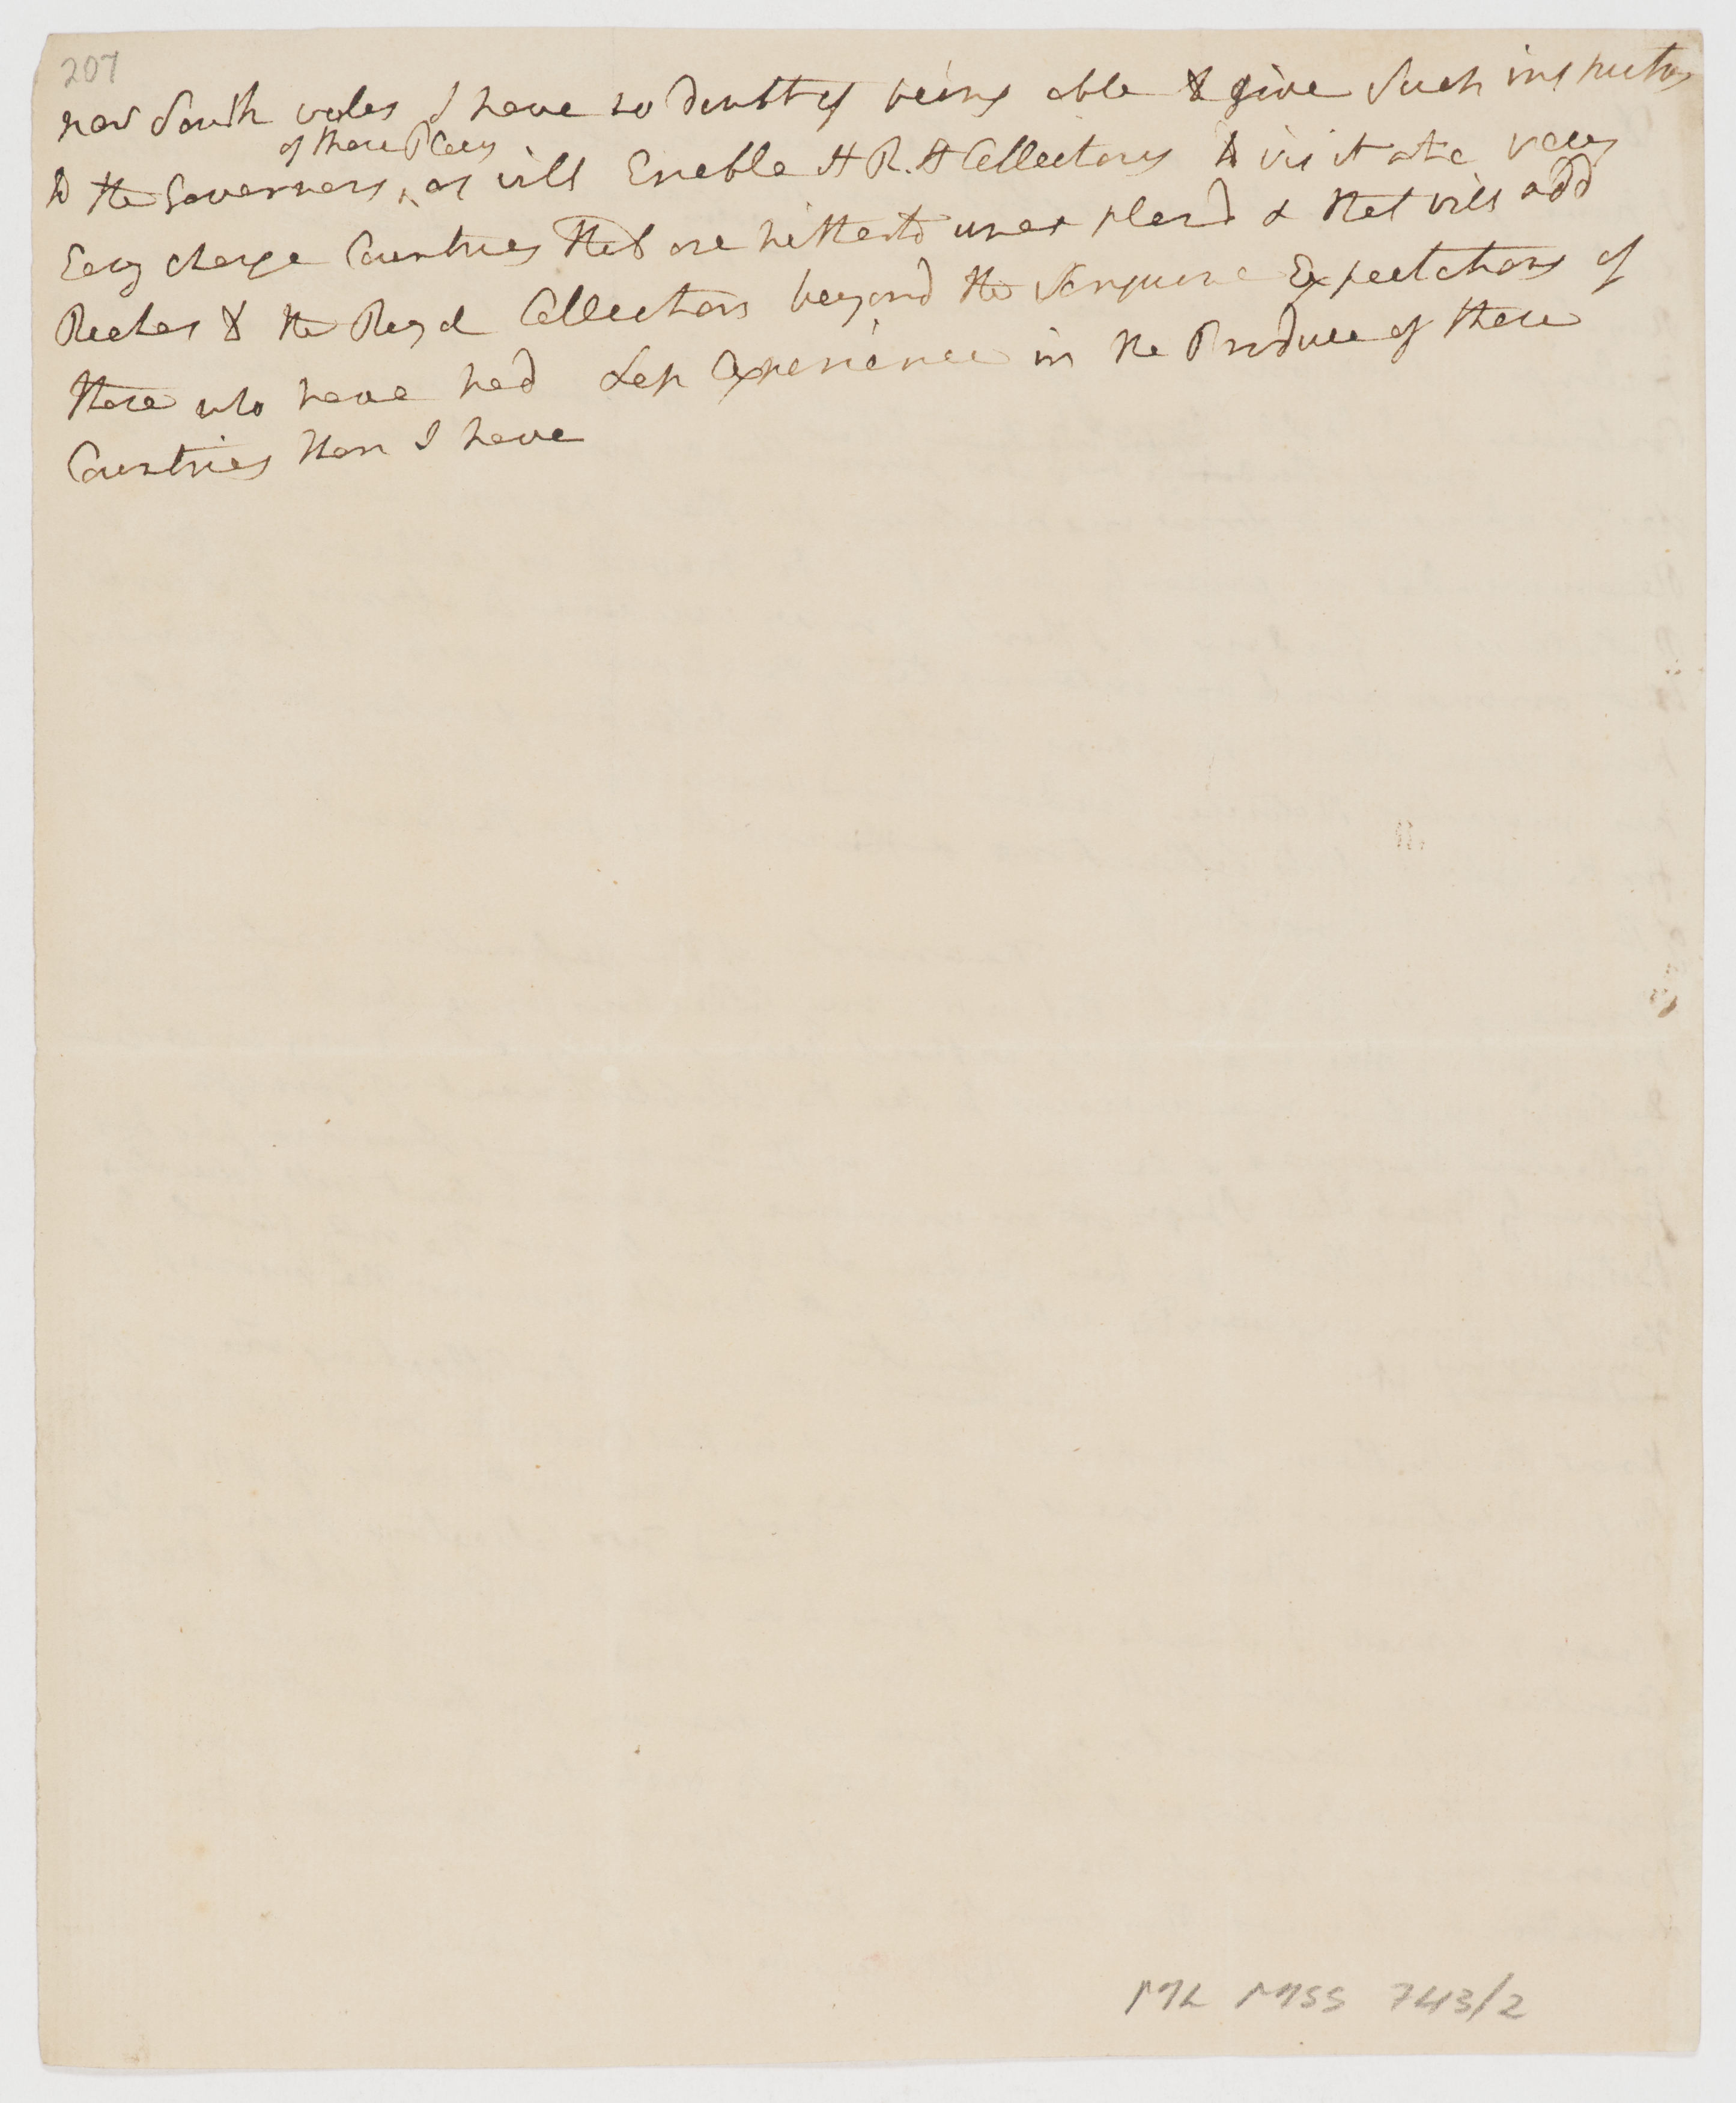 207
new South wales I have no doubt of being able to give Such instructions
of those Places
to the Governors, as will Enable H R. H Collectors to visit at a very
Easy charge Countries that are hitherto unexplord & that will add
Riches to the Royal Collections beyond the Sanguine Expectations of
those who have had Less Experience in the Produce of those
Countries than I have
ML MSS 743/2